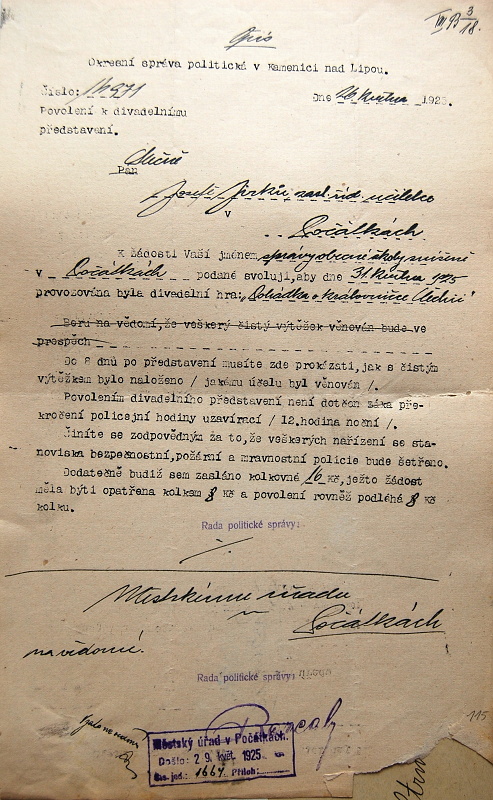 3/18.
Opis
Okresní správa politická v Kamenici nad Lipou.
Číslo: 14971 Dne 26. května 1925.
Povolení k divadelnímu
představení.
Slečně
Pan
Josefě Jirků, zast. říd. učitelce
v
Počátkách
K žádosti Vaší jménem správy obecné školy smíšené
v Počátkách podané svoluji, aby dne 31. května 1925
provozována byla divadelní hra: „Pohádka o královnice Uchii"
Beru na vědomí, že veškerý čistý výtěžek věnován bude ve
prospěch
Do 8 dnů po představení musíte zde prokázati, jak s čistým
výtěžkem bylo naloženo / jakému účelu byl věnován /.
Povolením divadelního představení není dotčen zákaz pře-
kročení policejní hodiny uzavírací / 12.hodina noční /.
Činíte se zodpovědným za to, že veškerých nařízení se sta-
noviska bezpečnostní, požární a mravnostní policie bude šetřeno.
Dodatečně budiž sem zasláno kolkovné 16 Kč, ježto žádost
měla býti opatřena kolkem 8 Kč a povolení rovněž podléhá 8 Kč
kolku.
Rada politické správy:
Městskému úřadu
v
Počátkách
na vědomí.
Rada politické správy:
Městský úřad v Počátkách.
Došlo: 29. květ. 1925
Čís. jed.: 1664 Příloh:
115